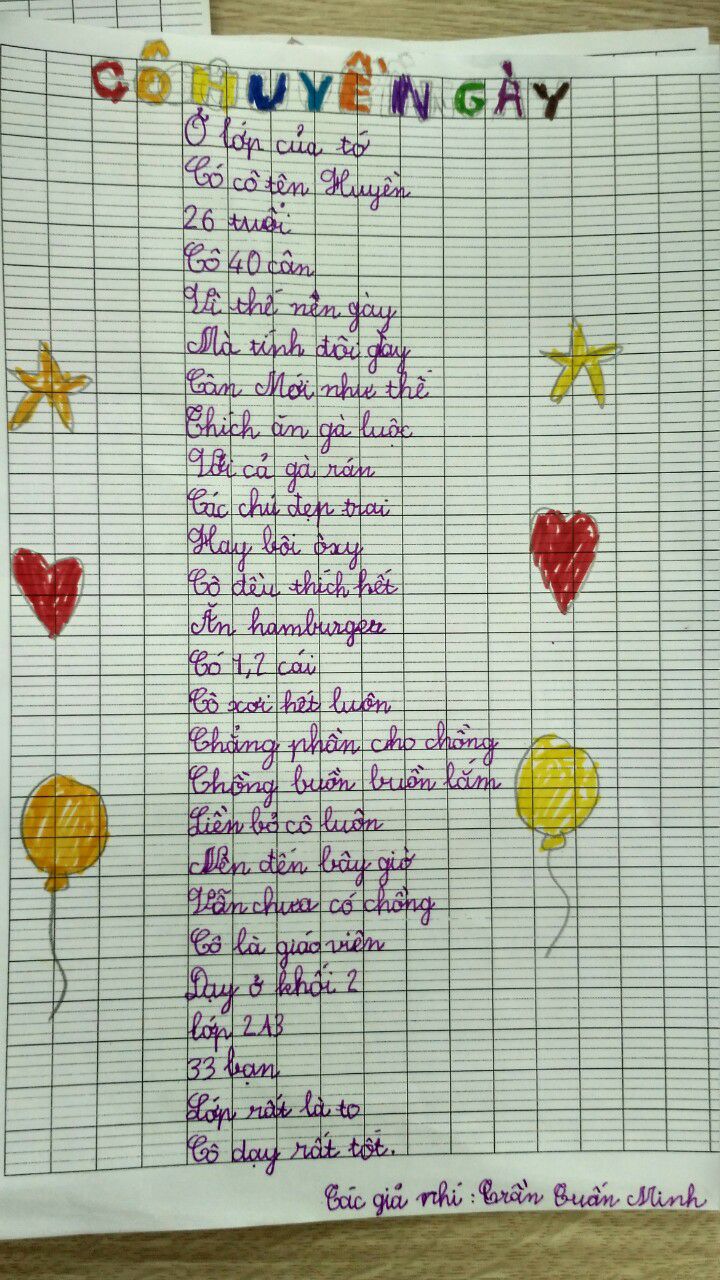 CÔ HUYỀN GÀY
Ở lớp của tớ
Có cô tên Huyền
26 tuổi
Cô 40 cân
Vì thế nên gày
Mà tính đôi gày
Cân Mới như thế
Thích ăn gà luộc
Với cả gà rán
Các chú đẹp trai
Hay bôi ôxy
Cô đều thích hết
Ăn hamburger
Có 1,2 cái
Cô xơi hết luôn
Chẳng phần cho chồng
Chồng buồn buồn lắm
Liền bỏ cô luôn
Nên đến bây giờ
Vẫn chưa có chồng
Cô là giáo viên
Dạy ở khối 2
lớp 2A3
33 bạn
Lớp rất là to
Cô dạy rất tốt.
Tác giả nhí : Trần Tuấn Minh